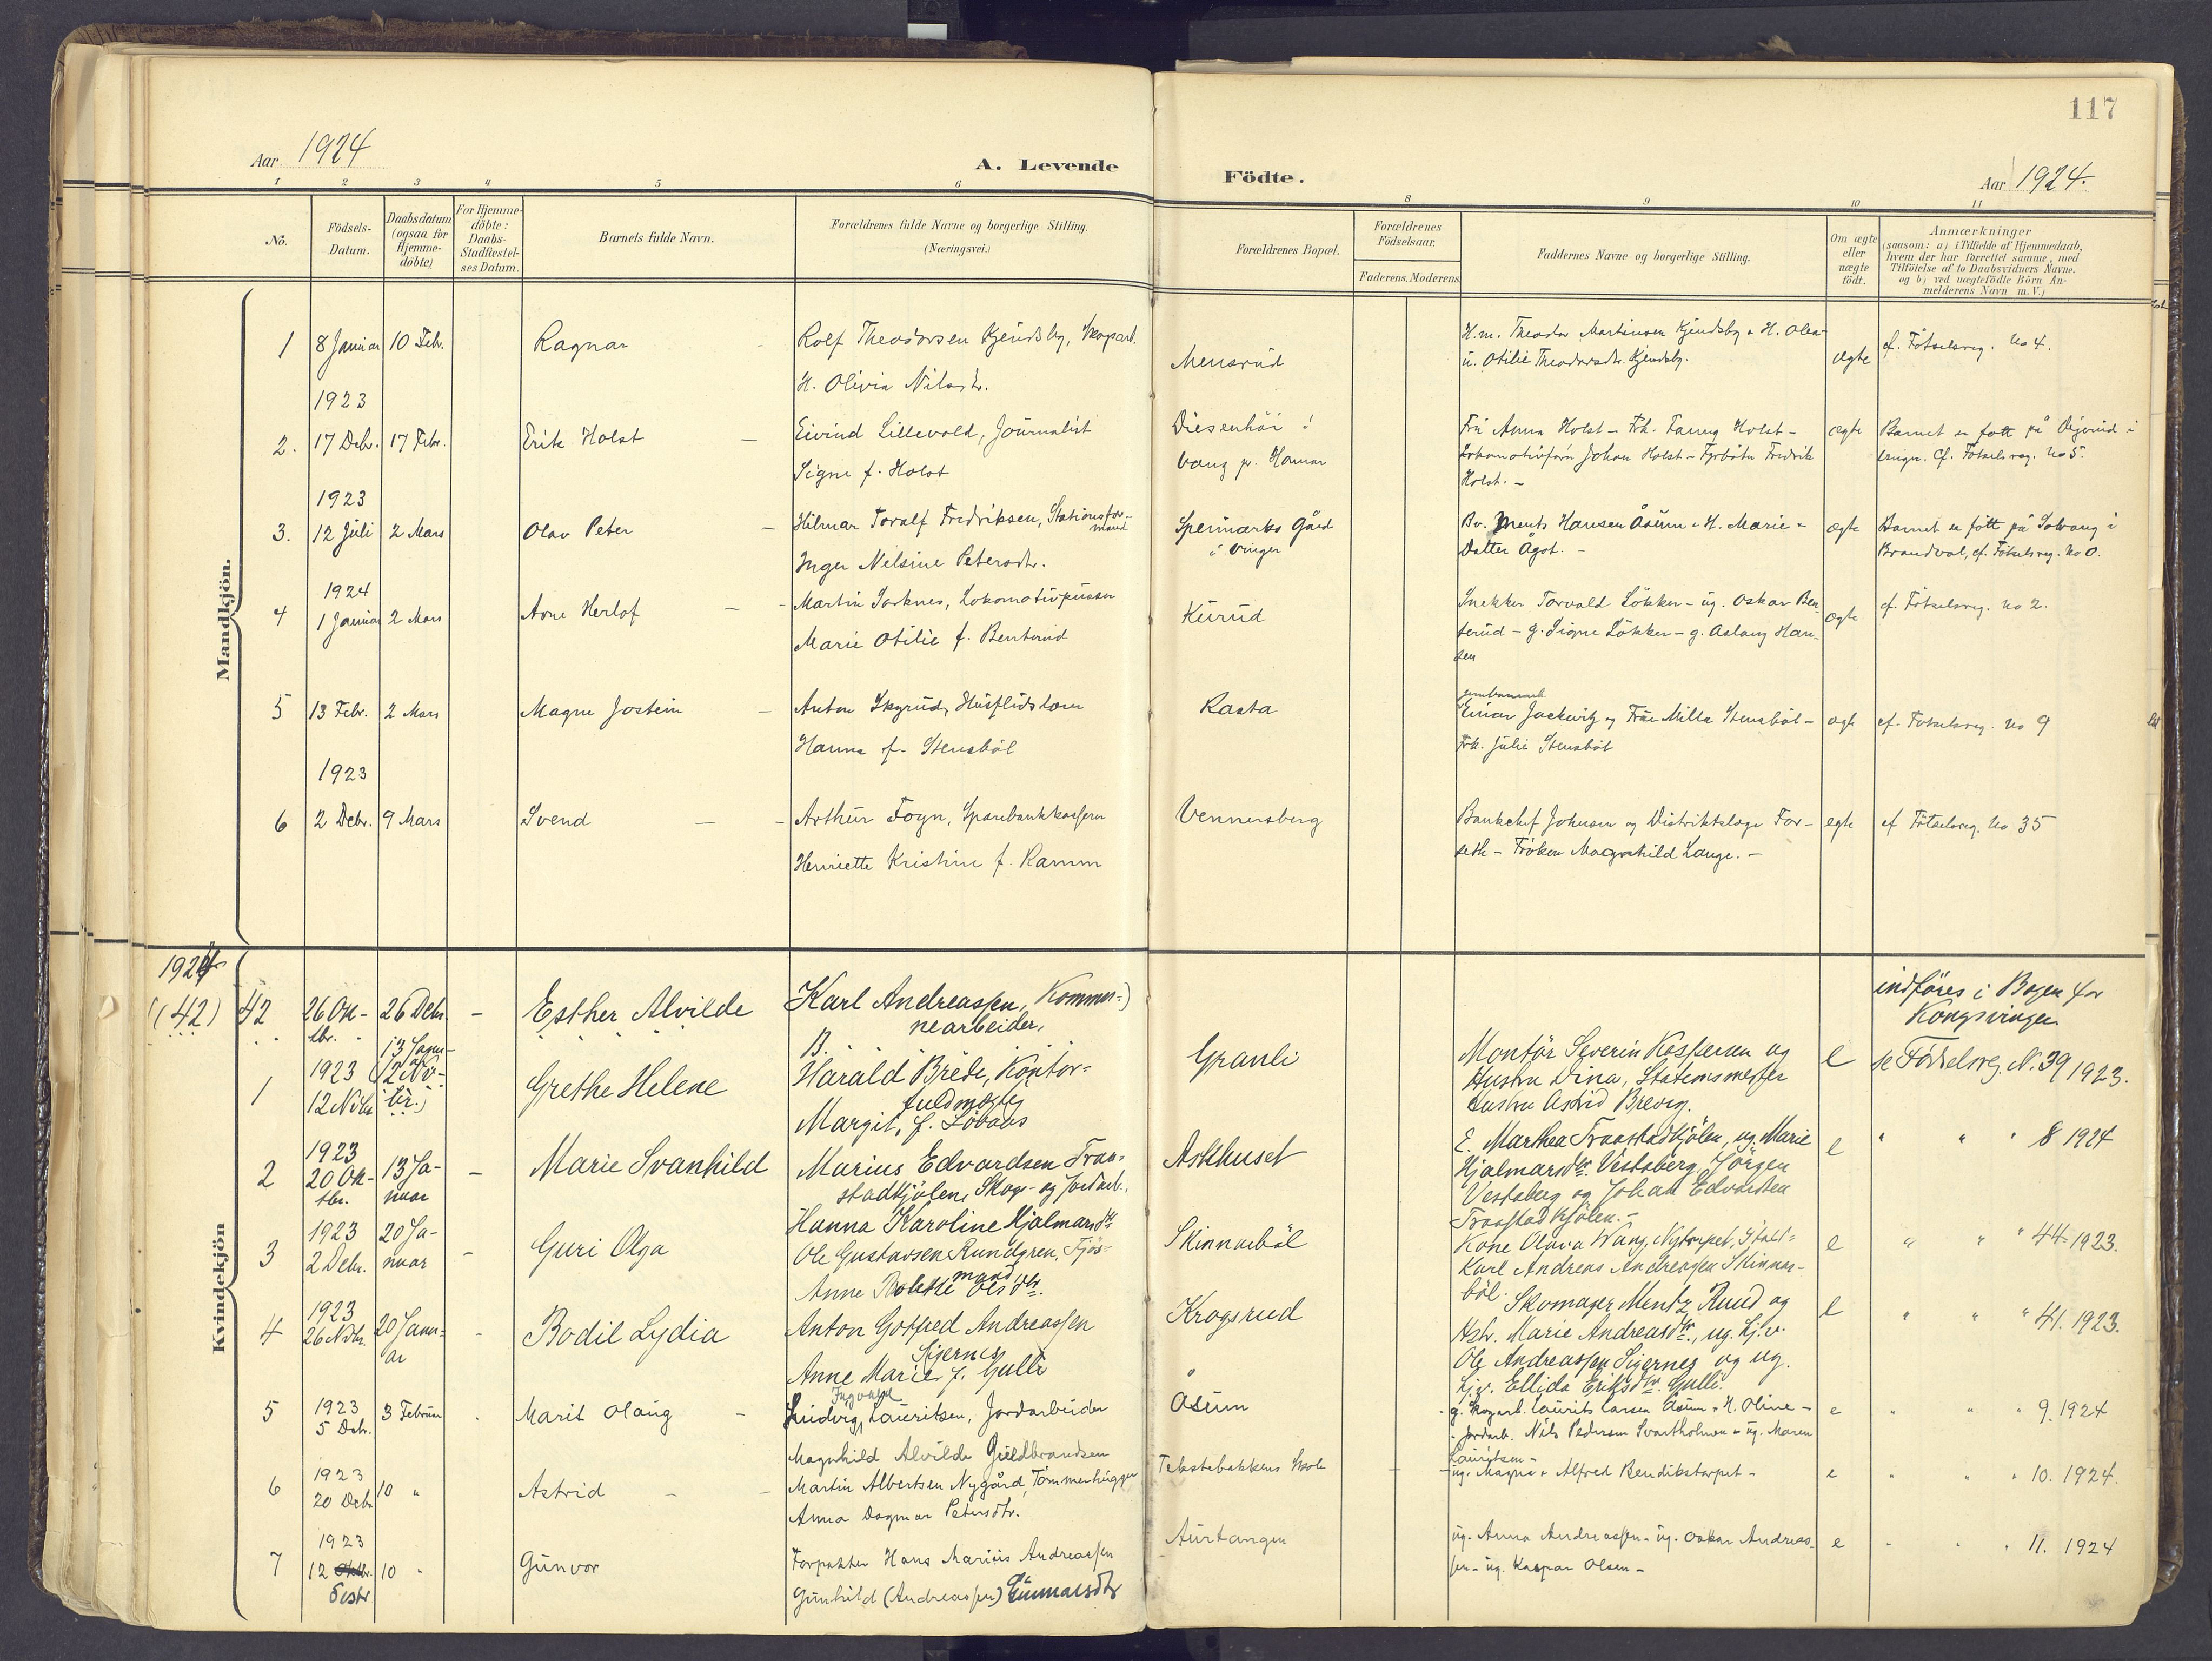 117
Aar 1924
A. Levende
Födte.
Aar 1924.
1 2 3 4 5 6 8 9 10 11
No.
Födsels-
Datum.
Daabsdatum
(ogsaa for
Hjemme-
döbte)
For Hjemme-
döbte:
Daabs-
Stadfæstel-
ses Datum.
Barnets fulde Navn.
Forældrenes fulde Navne og borgerlige Stilling.
(Næringsvei.)
Forældrenes Bopæl.
Forældrenes
Födselsaar.
Faderens. Moderens
Faddernes Navne og borgerlige Stilling.
Om ægte
eller
uægte
födt.
Anmærkninger
(saasom: a) i Tilfælde af Hjemmedaab,
hvem der har forrettet samme, med
Tilföielse af to Daabsvidners Navne.
og b) ved uægtefödte Börn An-
melderens Navn m. V.)
Mandkjön.
1 8 Januar 10 Feb. Ragnar - Rolf Theodorsen Kjendsby, Skogarb.
H. Olivia Nilsdtr.
Mensrud
H.m. Theodor Martinsen Kjendsby & H. Olea-
u. Otilie Theodorsdtr. Kjendsby.
ægte
cf. Fötselsreg. No 4.
1923
2. 17 Deb. 17 Febr. Erik Holst - Eivind Lillevold, Journalist
Signe f. Holst
Diesenhöi i
Vang pr. Hamar
Fru Anna Holst - Frk. Fanny Holst -
Lokomotivförer Johan Holst - Fyrböter Fredrik
Holst. -
ægte
Barnet er fött på
Cf. Fötselsreg. No 5.
1923
3. 12 Juli 2 Mars Olav Peter - Hilmar Toralf Fredriksen, Stationsfor-
mand
Inger Nilsine Petersdtr.
Speimarks Gård
i Vinger
Ments Hansen Åsum & H. Marie &
Datter Ågot. -
ægte
Barnet er fött på Solvang i
Brandval, cf. Fötselsreg. No 0.
1924
4 1 Januar 2 Mars Arne Herlof - - Martin Sorknes, Lokomotivpusser
Marie Otilie f. Benterud
Kurud
Snekker Torvald Lökker - ug. Oskar Ben-
terud - g. Signe Lökker - g. Aslaug Han-
sen
ægte
cf. Fötselsreg. No 2.
5 13 Febr. 2 Mars Magne Jostein - Anton Skyrud, Husflidslærer
Hanna f. Stensböl
Rasta
Einar Jackwitz og Frue Milla Stensböl -
Frk. Julie Stensböl
ægte
cf. Fötselsreg. No 9
1923
6 2 Debr. 9 Mars Svend - - Arthur Foyn, Sparebankkasserer
Henriette Kristine f. Ramm
Vennersberg
Bankchef Johnsen og Distriktslæge For-
seth - Fröken Magnhild Lange. -
egte
cf Fötselsreg. No 35
Kvindekjön
1924
(42) 42 26 Ok-
tbr. 26 Debr. - Esther Alvilde Karl Andreassen, Kommu-)
nearbeider,
B.
indföres i Bogen for
Kongsvinger
1 1923
12 Nvbr. 13 Janu-
ar
(12 No-
br.) Grethe Helene Harald Brede, Kontor-
fuldmægtig
Margit, f. Lövaas
Granli
Montör Severin Kaspersen og
Hustru Dina, Stationsmester
Hustru Astrid Brevig.
e
se Födselsreg. N. 39 1923.
2 1923
20 Ok-
tbr. 13 Ja-
nuar - Marie Svanhild Marius Edvardsen Traa-
stadkjölen, Skogs- og Jordarb.
Hanna Karoline Hjalmarsdtr
Askhuset
E. Marthea Traastadkjölen, ug. Marie
Hjalmarsdtr. Vestaberg, Jörgen
Vestaberg og Johan Edvardsen
Traastadkjölen. -
e
" " " 8 1924
3 1923
2 Debr. 20 Ja-
nuar - Guri Olga Ole Gustavsen Rundgren, Fjös-
mand
Anne Bolette Olsdtr.
Skinnarböl
Kone Olava Wang, Nytorpet,
Karl Andreas Andreassen Skinnar-
böl.
e
" " " 44. 1923.
4 1923
26 Nvbr. 20 Janu-
ar - Bodil Lydia Anton Gotfred Andreassen
Sigernes
Anne Marie f. Gulli
Krogsrud
Skomager Mentz Ruud og
Hstr. Marie Andreasdtr., ug. Lj.v.
Ole Andreassen Sigernes og ug.
Lj.v. Ellida Eriksdtr. Gulli.
e
" " " 41. 1923.
5 1923
5 Deb. 3 Februar Marit Olaug - Ludvig Lauritsen, Jordarbeider
Magnhild Alvilde Guldbrandsen
Åsum
g. Skogarb. Laurits Larsen Åsum & H. Oline -
Jordarb. Nils Pedersen Svartholmen & ug. Maren
Lauritsen -
e
" " " 9. 1924
6 1923
20 Deb. 10 " Astrid - - Martin Albertsen Nygård, Tömmerhugger
Anna Dagmar Petersdtr.
Tekstebakkens Skole
ug. Magna & Alfred Bendikstorpet -
e
" " " 10. 1924.
7 1923
12 Oktbr.
Desbr 10 " Gunvor Forpakter Hans Marius Andreassen
Gunhild (Andreassen) Gunnarsdtr
Aurtangen
ug. Anna Andreassen - ug. Oskar Andreas-
sen - ug. Kaspar Olsen -
e
" " " 11. 1924